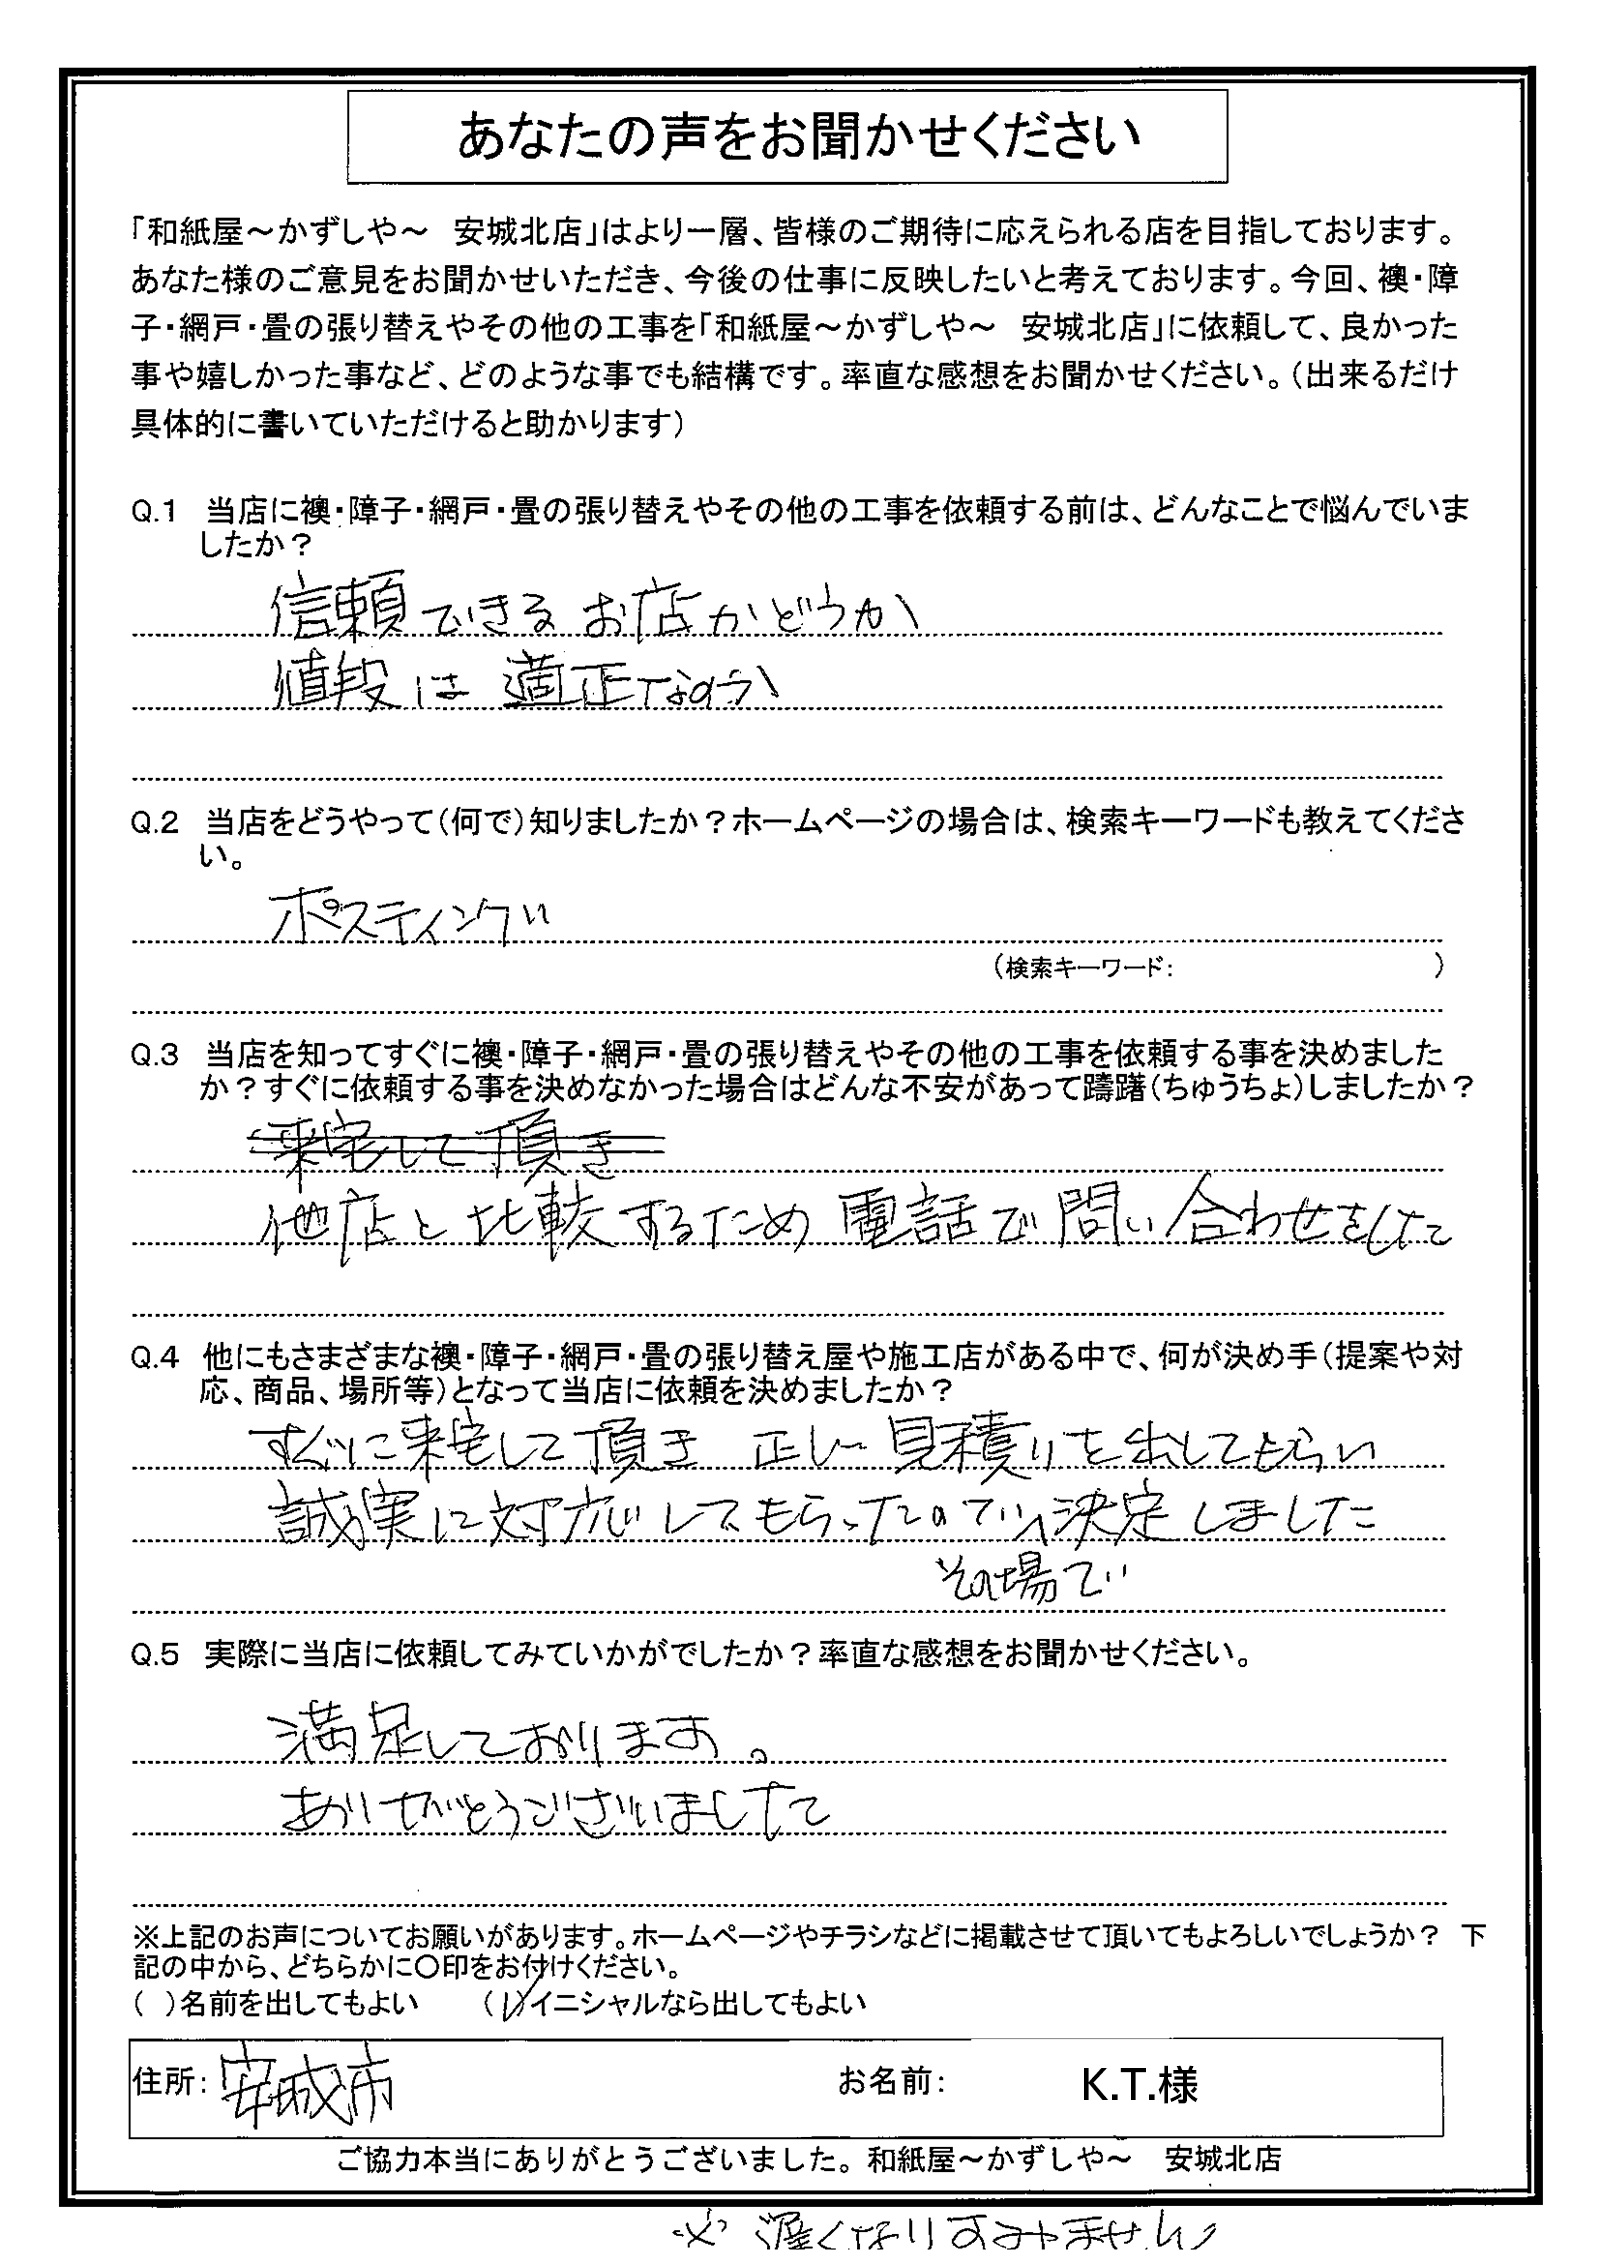 あなたの声をお聞かせください
「和紙屋～かずしや～　安城北店」はより一層、皆様のご期待に応えられる店を目指しております。
あなた様のご意見をお聞かせいただき、今後の仕事に反映したいと考えております。今回、襖・障
子・網戸・畳の張り替えやその他の工事を「和紙屋～かずしや～　安城北店」に依頼して、良かった
事や嬉しかった事など、どのような事でも結構です。率直な感想をお聞かせください。（出来るだけ
具体的に書いていただけると助かります）
Q.1　当店に襖・障子・網戸・畳の張り替えやその他の工事を依頼する前は、どんなことで悩んでいま
したか？
信頼できるお店かどうか
値段は適正なのか
Q.2　当店をどうやって（何で）知りましたか？ホームページの場合は、検索キーワードも教えてくださ
い。
ポスティング
（検索キーワード：　　　　　　　　）
Q.3　当店を知ってすぐに襖・障子・網戸・畳の張り替えやその他の工事を依頼する事を決めました
か？すぐに依頼する事を決めなかった場合はどんな不安があって躊躇（ちゅうちょ）しましたか？
来宅して頂き
他店と比較するため電話で問い合わせをした
Q.4　他にもさまざまな襖・障子・網戸・畳の張り替え屋や施工店がある中で、何が決め手（提案や対
応、商品、場所等）となって当店に依頼を決めましたか？
すぐに来宅して頂き 正しい見積りを出してもらい
誠実に対応してもらったので決定しました
その場で
Q.5　実際に当店に依頼してみていかがでしたか？率直な感想をお聞かせください。
満足しております。
ありがとうございました
※上記のお声についてお願いがあります。ホームページやチラシなどに掲載させて頂いてもよろしいでしょうか？　下
記の中から、どちらかに〇印をお付けください。
（ ）名前を出してもよい　　（レ）イニシャルなら出してもよい
住所：安城市　　お名前：　　K.T.様
ご協力本当にありがとうございました。和紙屋～かずしや～　安城北店
※ 遅くなりすみません